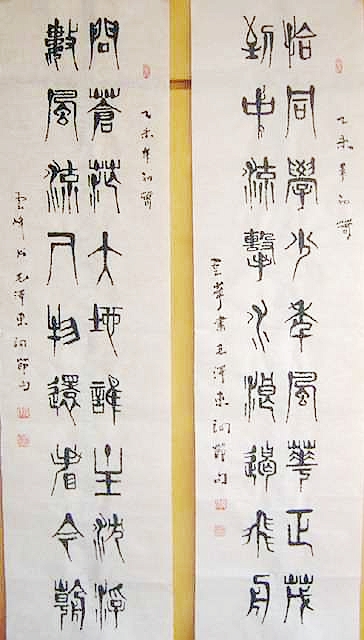 乙未年初
恰同學少年風華正茂
到中流擊水浪遏飛舟
雲峰書毛澤東詞節句
乙未年初
問蒼茫大地誰主沈浮
數風流人物還看今朝
雲峰書毛澤東詞節句